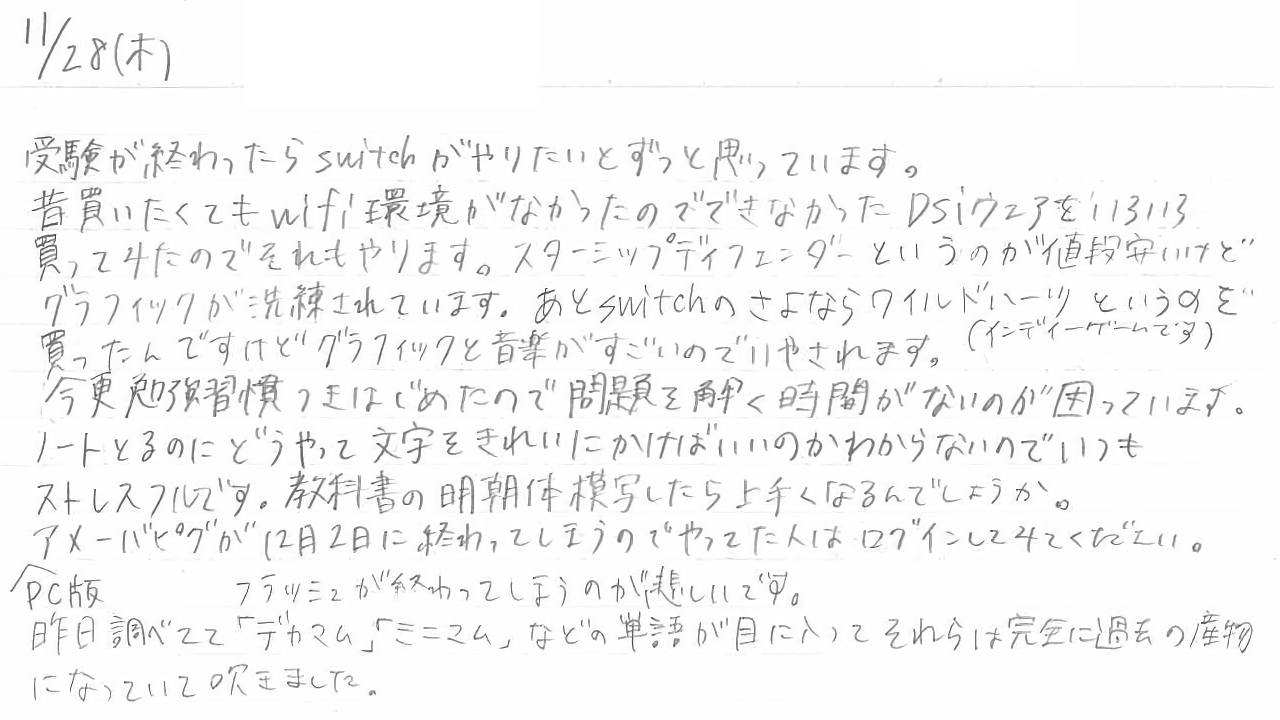 11/28(木)
受験が終わったらswitchがやりたいとずっと思っています。
昔買いたくてもwifi環境がなかったのでできなかったDSiウェアをいろいろ
買ってみたのでそれもやります。スターシップディフェンダーというのが値段安いけど
グラフィックが洗練されています。あとswitchのさよならワイルドハーツというのを
買ったんですけどグラフィックと音楽がすごいのでいやされます。(インディーゲームです)
今更勉強習慣つきはじめたので問題を解く時間がないのが困っています。
ノートとるのにどうやって文字をきれいにかけばいいのかわからないのでいつも
ストレスフルです。教科書の明朝体模写したら上手くなるんでしょうか。
アメーバピグが12月2日に終わってしまうのでやってた人はログインしてみてください。
PC版 フラッシュが終わってしまうのが悲しいです。
昨日調べてて「デカマム」「ミニマム」などの単語が目に入ってそれらは完全に過去の産物
になっていて吹きました。